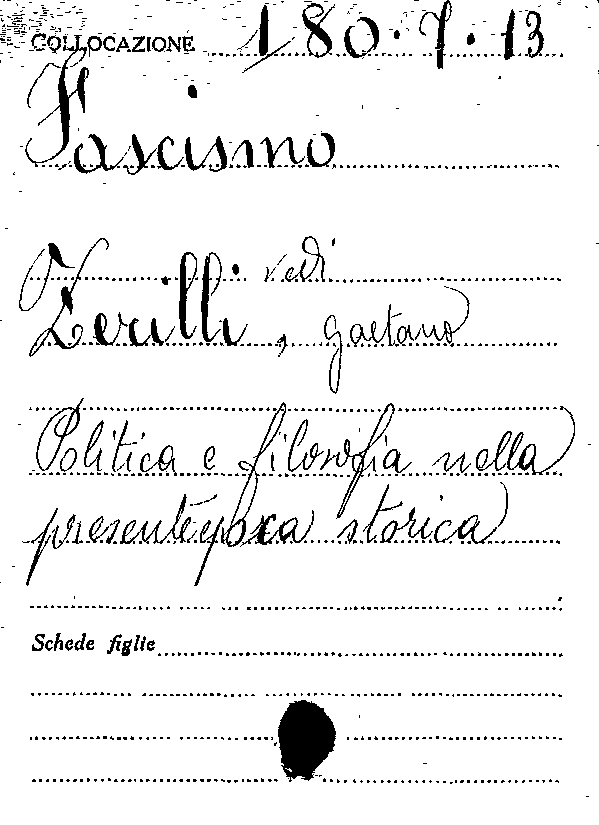 COLLOCAZIONE 180.7.13
Fascismo
vedi
Zerilli, Gaetano
Politica e filosofia nella
presente epoca storica
Schede figlie